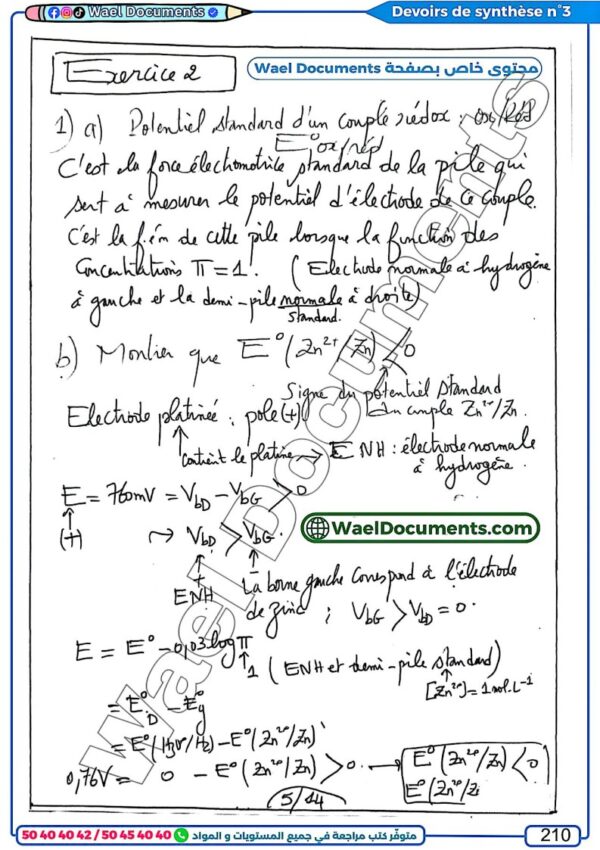 Wael Documents
Devoirs de synthèse n°3
Exercice 2
محتوى خاص بصفحة Wael Documents
1) a) Potentiel standard d'un couple rédox : ox/Réd
E°ox/réd
C'est la force électromotrice standard de la pile qui
sert à mesurer le potentiel d'électrode de ce couple.
C'est la f.é.m de cette pile lorsque la function des
Concentrations π = 1. (Electrode normale à hydrogène
à gauche et la demi-pile normale à droite)
standard.
b) Montrer que E°(Zn²⁺/Zn) < 0
Signe du potentiel standard
du couple Zn²⁺/Zn.
Electrode platinée : pole (+)
contient le platine → ENH : électrode normale
à hydrogène.
E = 760mV = VbD - VbG > 0
(+) → VbD > VbG
WaelDocuments.com
ENH
La borne gauche correspond à l'électrode
de zinc ; VbG > VbD = 0.
E = E° - 0,03 log π
1 (ENH et demi-pile standard)
[Zn²⁺] = 1 mol.L⁻¹
= E°D - E°g
= E°(H₃O⁺/H₂) - E°(Zn²⁺/Zn)
0,76V = 0 - E°(Zn²⁺/Zn) > 0 → E°(Zn²⁺/Zn) < 0
E°(Zn²⁺/Zn
5/14
Wael Documents
50 40 40 42 / 50 45 40 40
متوفّر كتب مراجعة في جميع المستويات و المواد
210